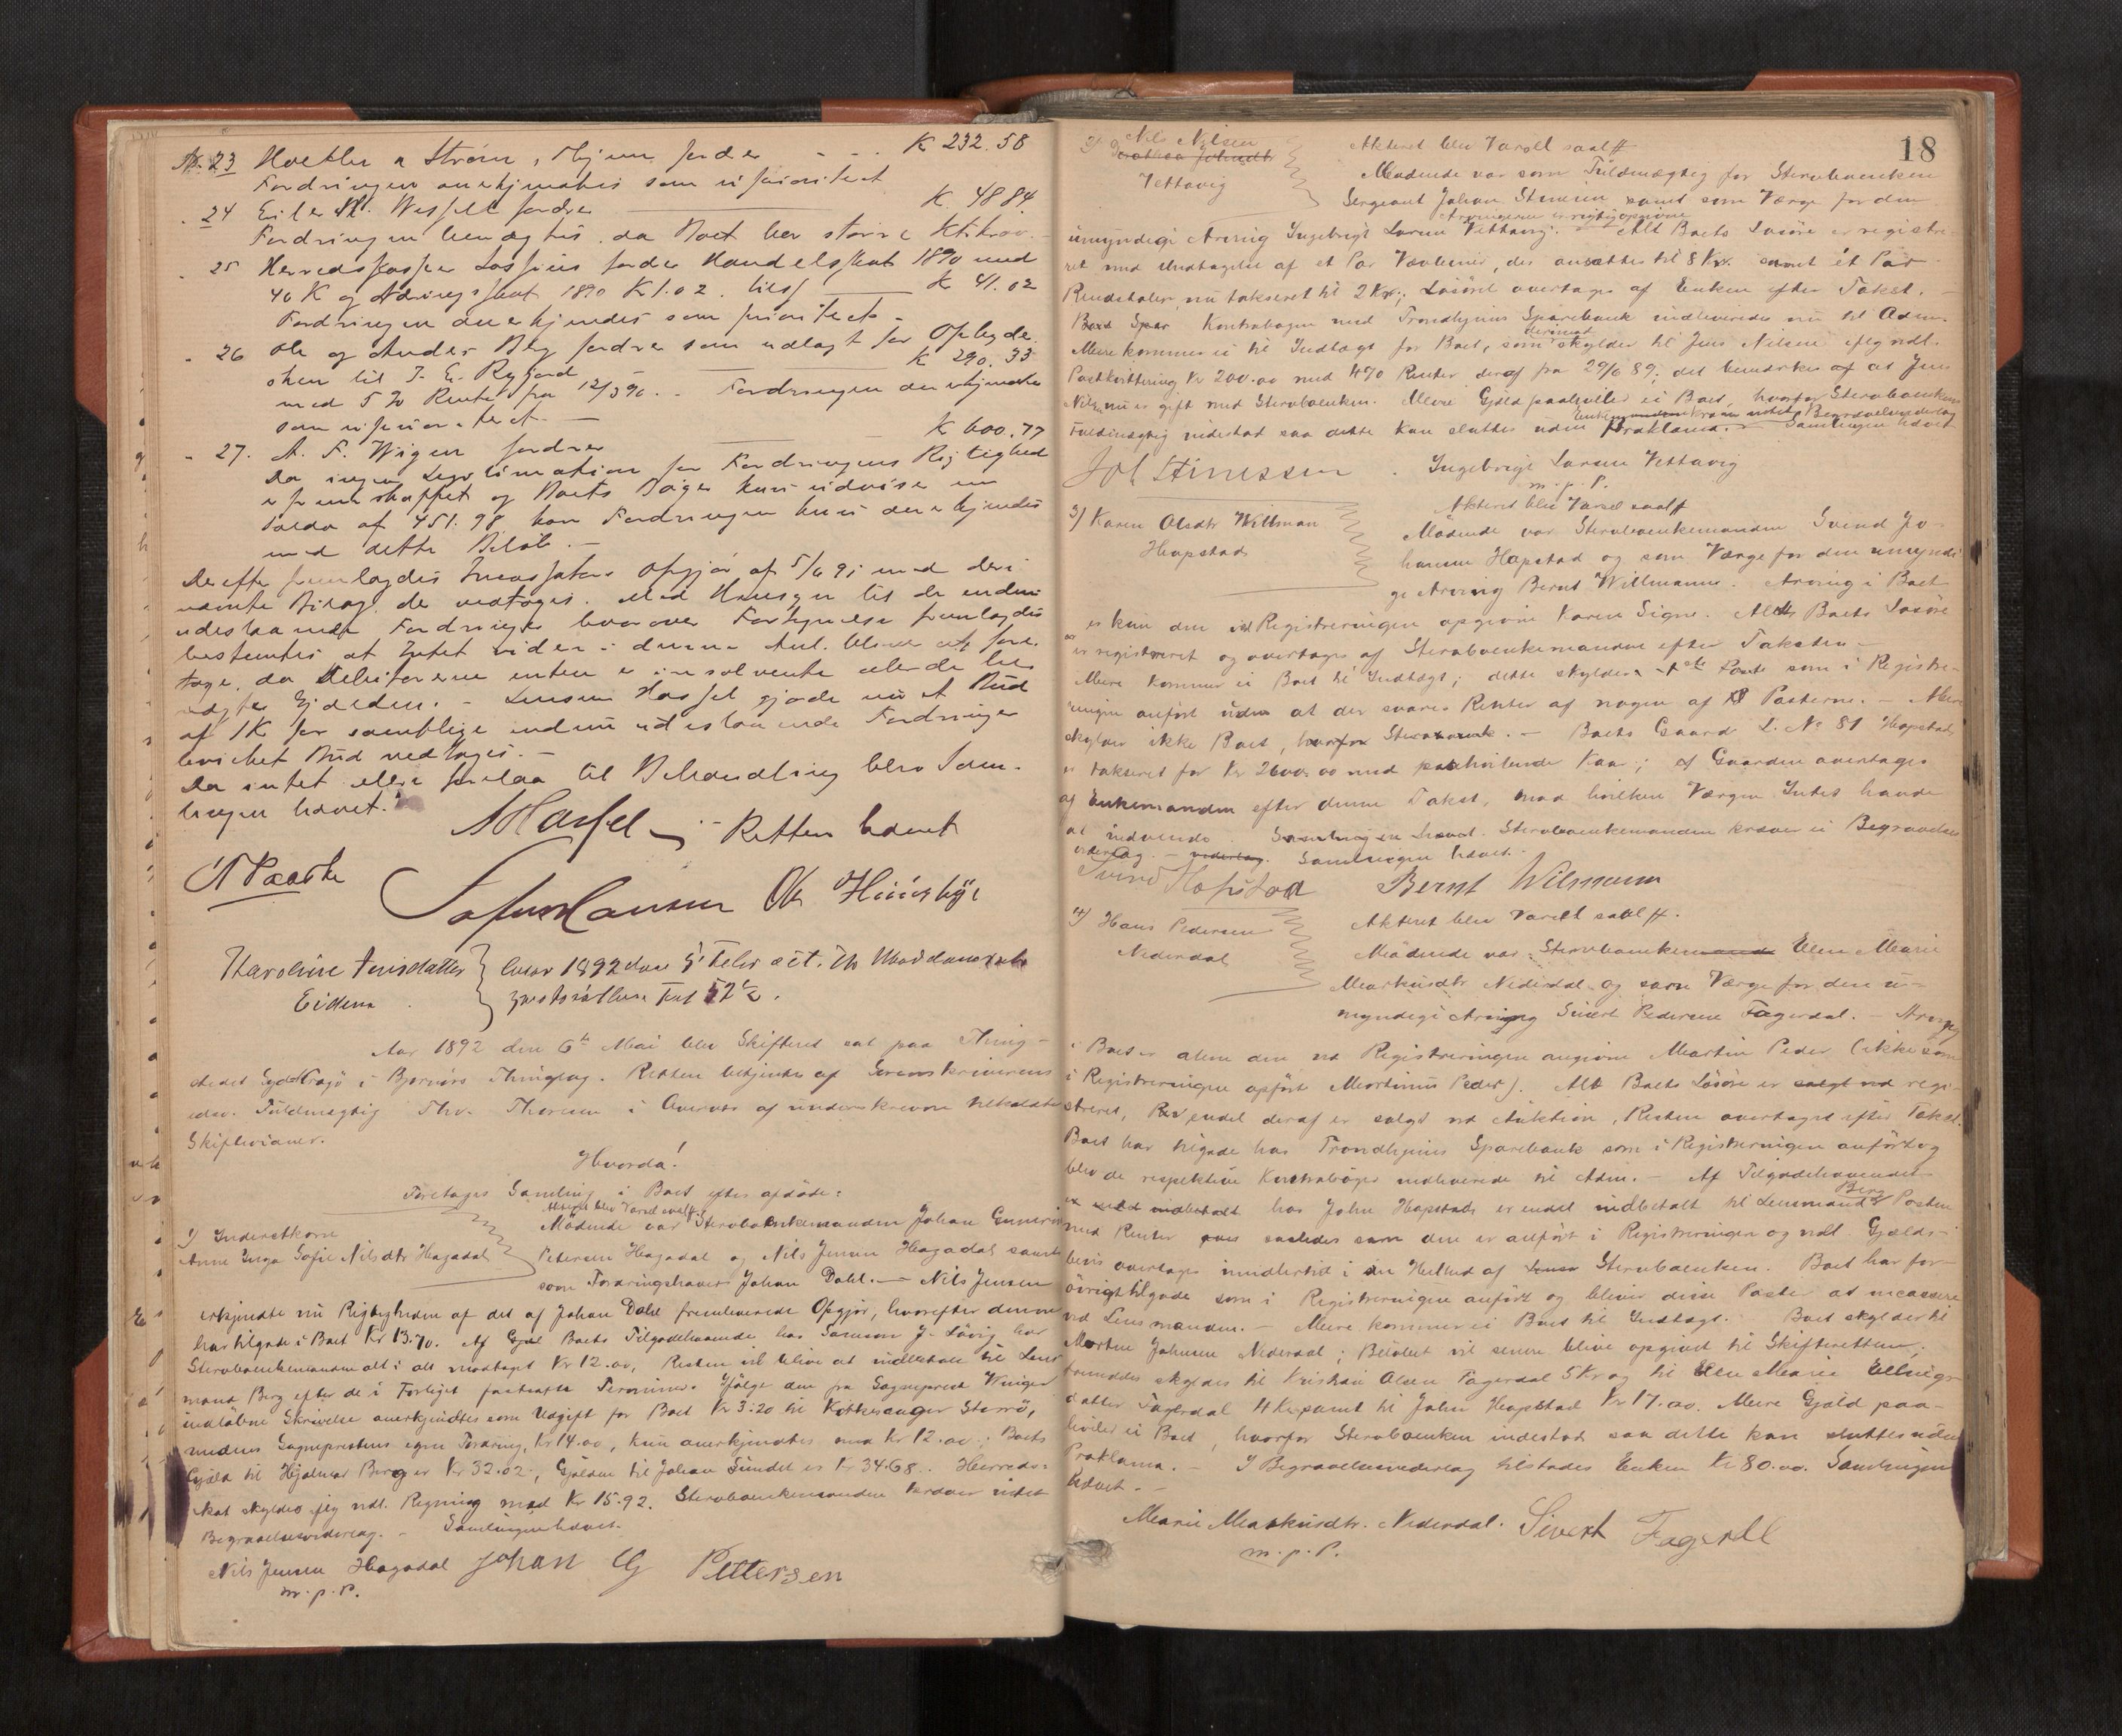 No. 23 Hvetter & Strøm, fordrer - - - K 232.58
Fordringen anerkjendtes som uprioriteret
- 24 Eiler Wessell fordrer K. 48 84.
Fordringen benægtes. da Boet har større
- 25 Herredskasser Lossius fordrer Handelsskat 1890 med
40 K og Næringsskat 1890 K 1.02. tils K 41.02
Fordringen anerkjendes som prioriteret -
- 26 Ole og Anders Berg fordrer som udlagt for Opbyde
lsen til J. E. K 290.33
med 5 % Rente fra 12/3 90. - Fordringen anerkjendtes
som uprioriteret -
- 27. A. F. Wigen fordrer K 600.77
Da ingen Legitimation for Fordringens Rigtighed
er fremskaffet og Boets Bøger kun udviser en
Saldo af 451.98 kan Fordringen kun anerkjendes
med dette Beløb. -
Derefter fremlagdes Incassators Opgjør af 5/6 91 med deri
nævnte Bilag, der vedtoges. Med Hensyn til de endnu
udestaaende Fordringer hvorover Fortegnelse fremlagdes
bestemtes at Intet videre i denne Anl. bliver at fore-
tage, da Debitorerne enten er insolvente eller de be-
nægter Gjælden. - Lensm Hassel gjorde nu et Bud
af 1 K for samtlige endnu udestaaende Fordringer
hvilket Bud vedtoges. -
Da intet mere forelaa til Behandling blev Sam-
lingen hævet.
MHassel - Retten hævet
Karoline Jensdatter
Eidem
Aar 1892 den 6te Mai blev Skifteret sat paa Thing-
stedet Syd Krogø i Bjørnørs Thinglag. Retten betjentes af Sorenskriverens
edsv. Fuldmægtig Thv. Thoresen i Overvær af underskrevne tilkaldte
Skiftevidner.
Hvorda!
Foretoges Samling i Boet efter afdøde:
Akteret blev Varsel saalt
1) Inderstkone
Anne Inga Sofie Nilsdtr Hagadal
Mødende var Stervboenkemanden Johan Gunerius
Petersen Hagadal og Nils Jensen Hagadal samt
som Fordringshaver Johan Dahl. - Nils Jensen
erkjendte nu Rigtigheden af det af Johan Dahl fremleverede Opgjør, hvorefter denne
har tilgode i Boet Kr 13.70. Af Boets Tilgodehavende hos J. Løvig har
Stervboenkemanden alt i alt modtaget Kr 12.00, Resten vil blive at indbetale til Lens
mand Berg efter de i Forliget fastsatte Terminer. Ifølge den fra Sogneprest
indløbne Skrivelse anerkjendtes som Udgift for Boet Kr 3.20 til Kirkesanger Storrø,
medens Sogneprestens egen Fordring, Kr 14.00, kun anerkjendtes med Kr 12.00. Boets
Gjæld til Hjalmar Berg er Kr 32.02, Gjælden til Johan Sundet er Kr 34.68. Herreds-
skat skyldes iflg ndl. Regning med Kr 15.92. Stervboenkemanden kræver intet
Begravelsesvederlag. - Samlingen hævet.
Nils Jensen Hagadal Johan G Pettersen
m. p. P.
18
2) Nils Nilsen
Vettavig
Akteret blev Varsel saalt
Mødende var som Fuldmægtig for Stervboenken
Sergeant Johan Stinesen samt som Værge for den
Arvingerne er rigtig opgivne
umyndige Arving Ingebrigt Larsen Vettavig. Alt Boets Løsøre er registre-
ret med Undtagelse af et Par Vævlener, der ansættes til 8 Kr. samt et Par
nu takseret til 2 Kr; Løsøret overtages af Enken efter Takst. -
Kontrabogen med Trondhjems Sparebank indleveredes nu til Adm.
Mere kommer ei til Indtægt for Boet, som derimod skylder til Jens Nilsen iflg ndl.
Postkvittering Kr 200.00 med 4% Renter deraf fra 29/6 89; det bemærkes at Jens
Nilsen nu er gift med Stervboenken. Mere Gjæld paahviler ei Boet, hvorfor Stervboenkens
Fuldmægtig indestod saa dette kan sluttes uden Proklama. - Samlingen hævet
Joh Stinessen. Ingebrigt Larsen Vettavig
m. p. P.
3) Karen Olsdtr Willman
Hopstad
Akteret blev Varsel saalt
Mødende var Stervboenkemanden Svend Jo-
hansen Hopstad og som Værge for den umyndi
ge Arving Bernt Willmann. Arving i Boet
er kun den ved Registreringen opgivne Karen Signe. Alt Boets Løsøre
er registreret og overtages af Stervboenkemanden efter Taksten -
Mere kommer ei Boet til Indtægt; dette skylder som i Registre-
ringen anført uden at der svares Renter af nogen af Posterne. - Mere
skylder ikke Boet, hvorfor - Boets Gaard L. No 81 Hopstad,
er takseret for Kr 2600.00 med paahvilende Kaar; Gaarden overtages
af Enkemanden efter denne Takst, mod hvilken Værgen Intet havde
at indvende Samlingen hævet. Stervboenkemanden kræver ei Begravelses
vederlag. - vederlag. Samlingen hævet.
Svend Hopstad Bernt Wilmann
4) Hans Pedersen
Nederdal
Akteret blev Varsel saalt.
Mødende var Stervboenken Elen Marie
Markusdtr Nederdal og som Værge for den u-
myndige Arving Sivert Pedersen Fagerdal. - Arving
i Boet er alene den ved Registreringen angivne Martin Peder (ikke som
i Registreringen opført Martinus Peder). Alt Boets Løsøre er solgt ved regi-
streret, endel deraf er solgt ved Auktion, Resten overtages efter Takst.
Boet har tilgode hos Trondhjems Sparebank som i Registreringen anført og
blev de respektive Kontrabøger indleverede til Adm. - Af Tilgodehavendet
hos John Hopstad er endel indbetalt til Lensmand Berg Posten
med Renter saaledes som den er anført i Registreringen og ndl. Gjælds-
bevis overtages imidlertid i sin Helhed af Stervboenken. Boet har for-
øvrigt tilgode som i Registreringen anført og bliver disse Poster at incassere
ved Lensmanden. - Mere kommer ei Boet til Indtægt. Boet skylder til
Morten Johnsen Nederdal; Beløbet vil senere blive opgivet til Skifteretten;
fremdeles skyldes til Kristian Olsen Fagerdal 5 Kr og til Elen Marie Ellings
datter Fagerdal 4 Kr samt til John Hopstad Kr 17.00. Mere Gjæld paa-
hviler ei Boet, hvorfor Stervboenken indestod saa dette kan sluttes uden
Proklama. - I Begravelsesvederlag tilstodes Enken Kr 80.00. Samlingen
hævet. -
Marie Markusdtr. Nederdal. Sivert Fagerdl
m. p. P.